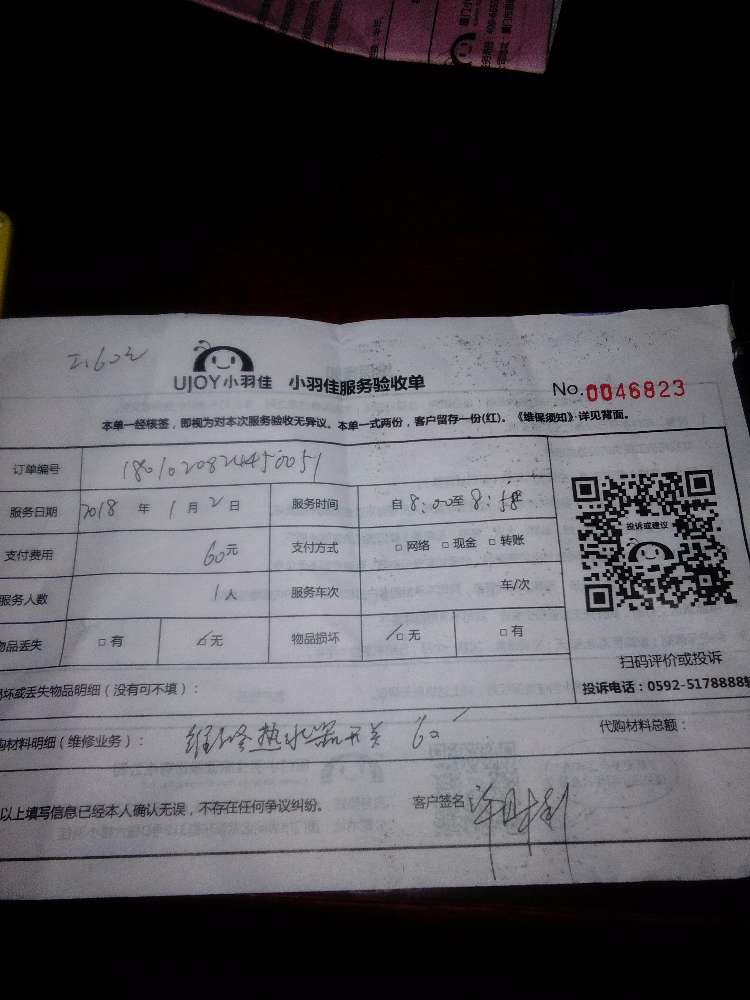 UJOY小羽佳 小羽佳服务验收单
No.0046823
本单一经核签，即视为对本次服务验收无异议。本单一式两份，客户留存一份(红)。《维保须知》详见背面。
订单编号 1801020824450051
服务日期 2018 年 1 月 2 日 服务时间 自 8:00至 8:58
支付费用 60元 支付方式 □ 网络 □ 现金 □ 转账
服务人数 1人 服务车次 车/次
物品丢失 □ 有 □ 无 物品损坏 □ 无 □ 有
投诉或建议
扫码评价或投诉
投诉电话：0592-5178888转
坏或丢失物品明细（没有可不填）：
购材料明细（维修业务）： 维修热水器开关 60
代购材料总额：
以上填写信息已经本人确认无误，不存在任何争议纠纷。 客户签名